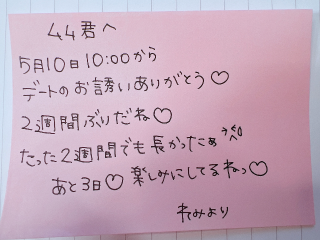 44君へ
5月10日10:00から
デートのお誘いありがとう♡
2週間ぶりだね♡
たった2週間でも長かったあ
あと3日♡楽しみにしてるねっ♡
れみより